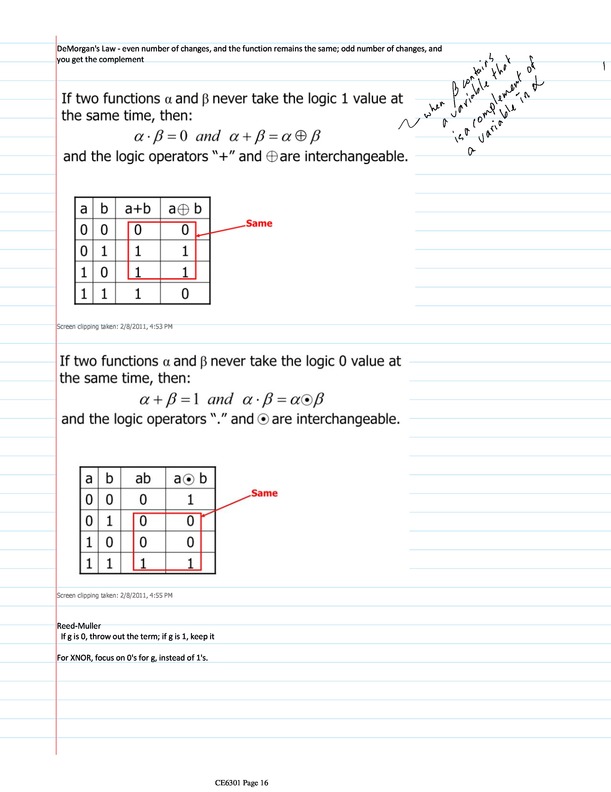 DeMorgan's Law - even number of changes, and the function remains the same; odd number of changes, and
you get the complement
1
~ when β contains
a variable that
is a complement of
a variable in α
If two functions α and β never take the logic 1 value at
the same time, then:
α · β = 0 and α + β = α ⊕ β
and the logic operators “+” and ⊕ are interchangeable.
a b a+b a⊕ b
0 0 0 0
Same
0 1 1 1
1 0 1 1
1 1 1 0
Screen clipping taken: 2/8/2011, 4:53 PM
If two functions α and β never take the logic 0 value at
the same time, then:
α + β = 1 and α · β = α⊙β
and the logic operators “.” and ⊙ are interchangeable.
a b ab a⊙ b
0 0 0 1
Same
0 1 0 0
1 0 0 0
1 1 1 1
Screen clipping taken: 2/8/2011, 4:55 PM
Reed-Muller
If g is 0, throw out the term; if g is 1, keep it
For XNOR, focus on 0's for g, instead of 1's.
CE6301 Page 16